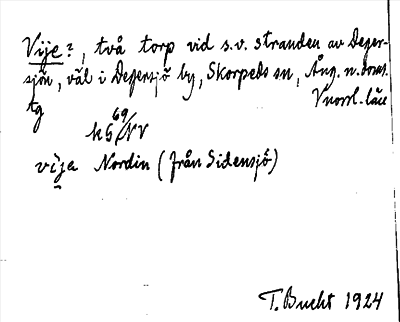 Vije?, två torp vid s.v. stranden av Degersjön, väl i Degersjö by, Skorpeds sn, Ång. n. doms.
tg Vnorrl. län
hS 69/NV
vija Nordin (från Sidensjö)
T. Bucht 1924